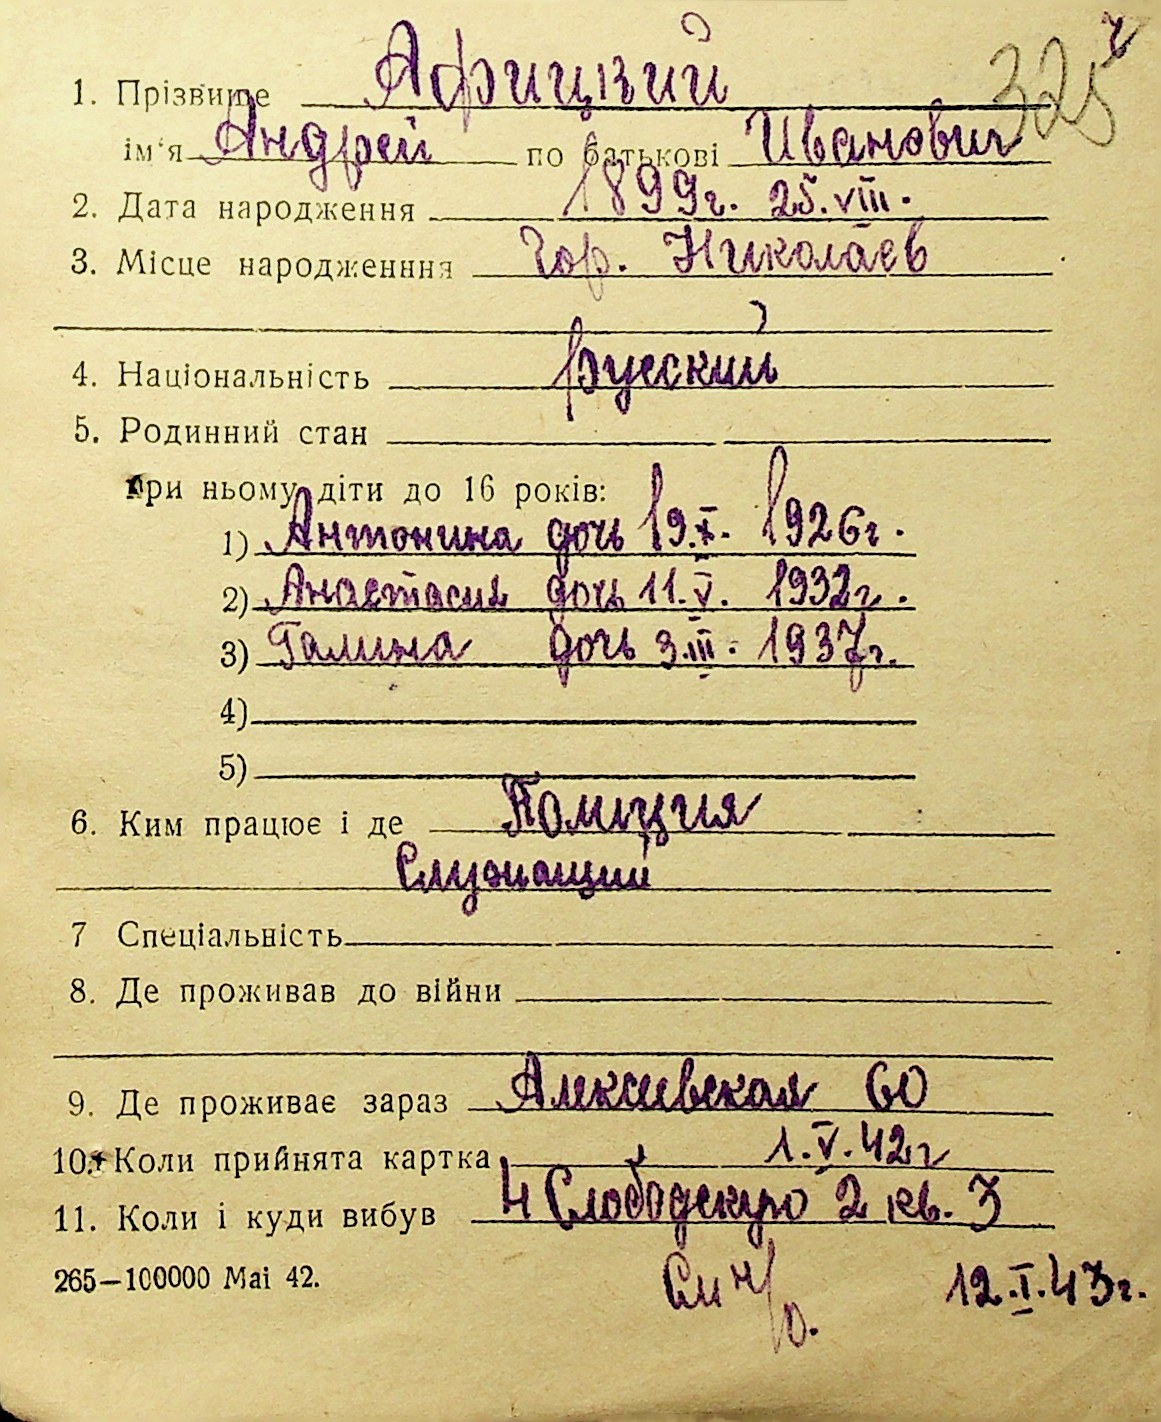 325
1. Прізвище Африцкий
ім'я Андрей по батькові Иванович
2. Дата народження 1899г. 25.VIII.
3. Місце народженння гор. Николаев
4. Національність русский
5. Родинний стан
при ньому діти до 16 років:
1) Антонина дочь 19.X. 1926г.
2) Анастасия дочь 11.V. 1932г.
3) Галина дочь 3.III. 1937г.
4)
5)
6. Ким працює і де Полиция
Служащий
7 Спеціальність
8. Де проживав до війни
9. Де проживає зараз Алексеевская 60
10. Коли прийнята картка 1.V.42г
11. Коли і куди вибув 4 Слободскую 2 кв. 3
265—100000 Mai 42.
См н/о. 12.I.43г.